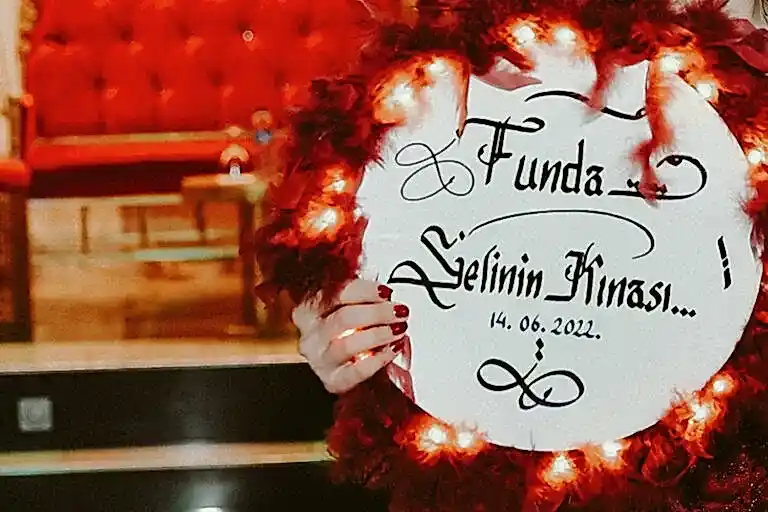 Funda
Gelinin Kınası...
14. 06. 2022.